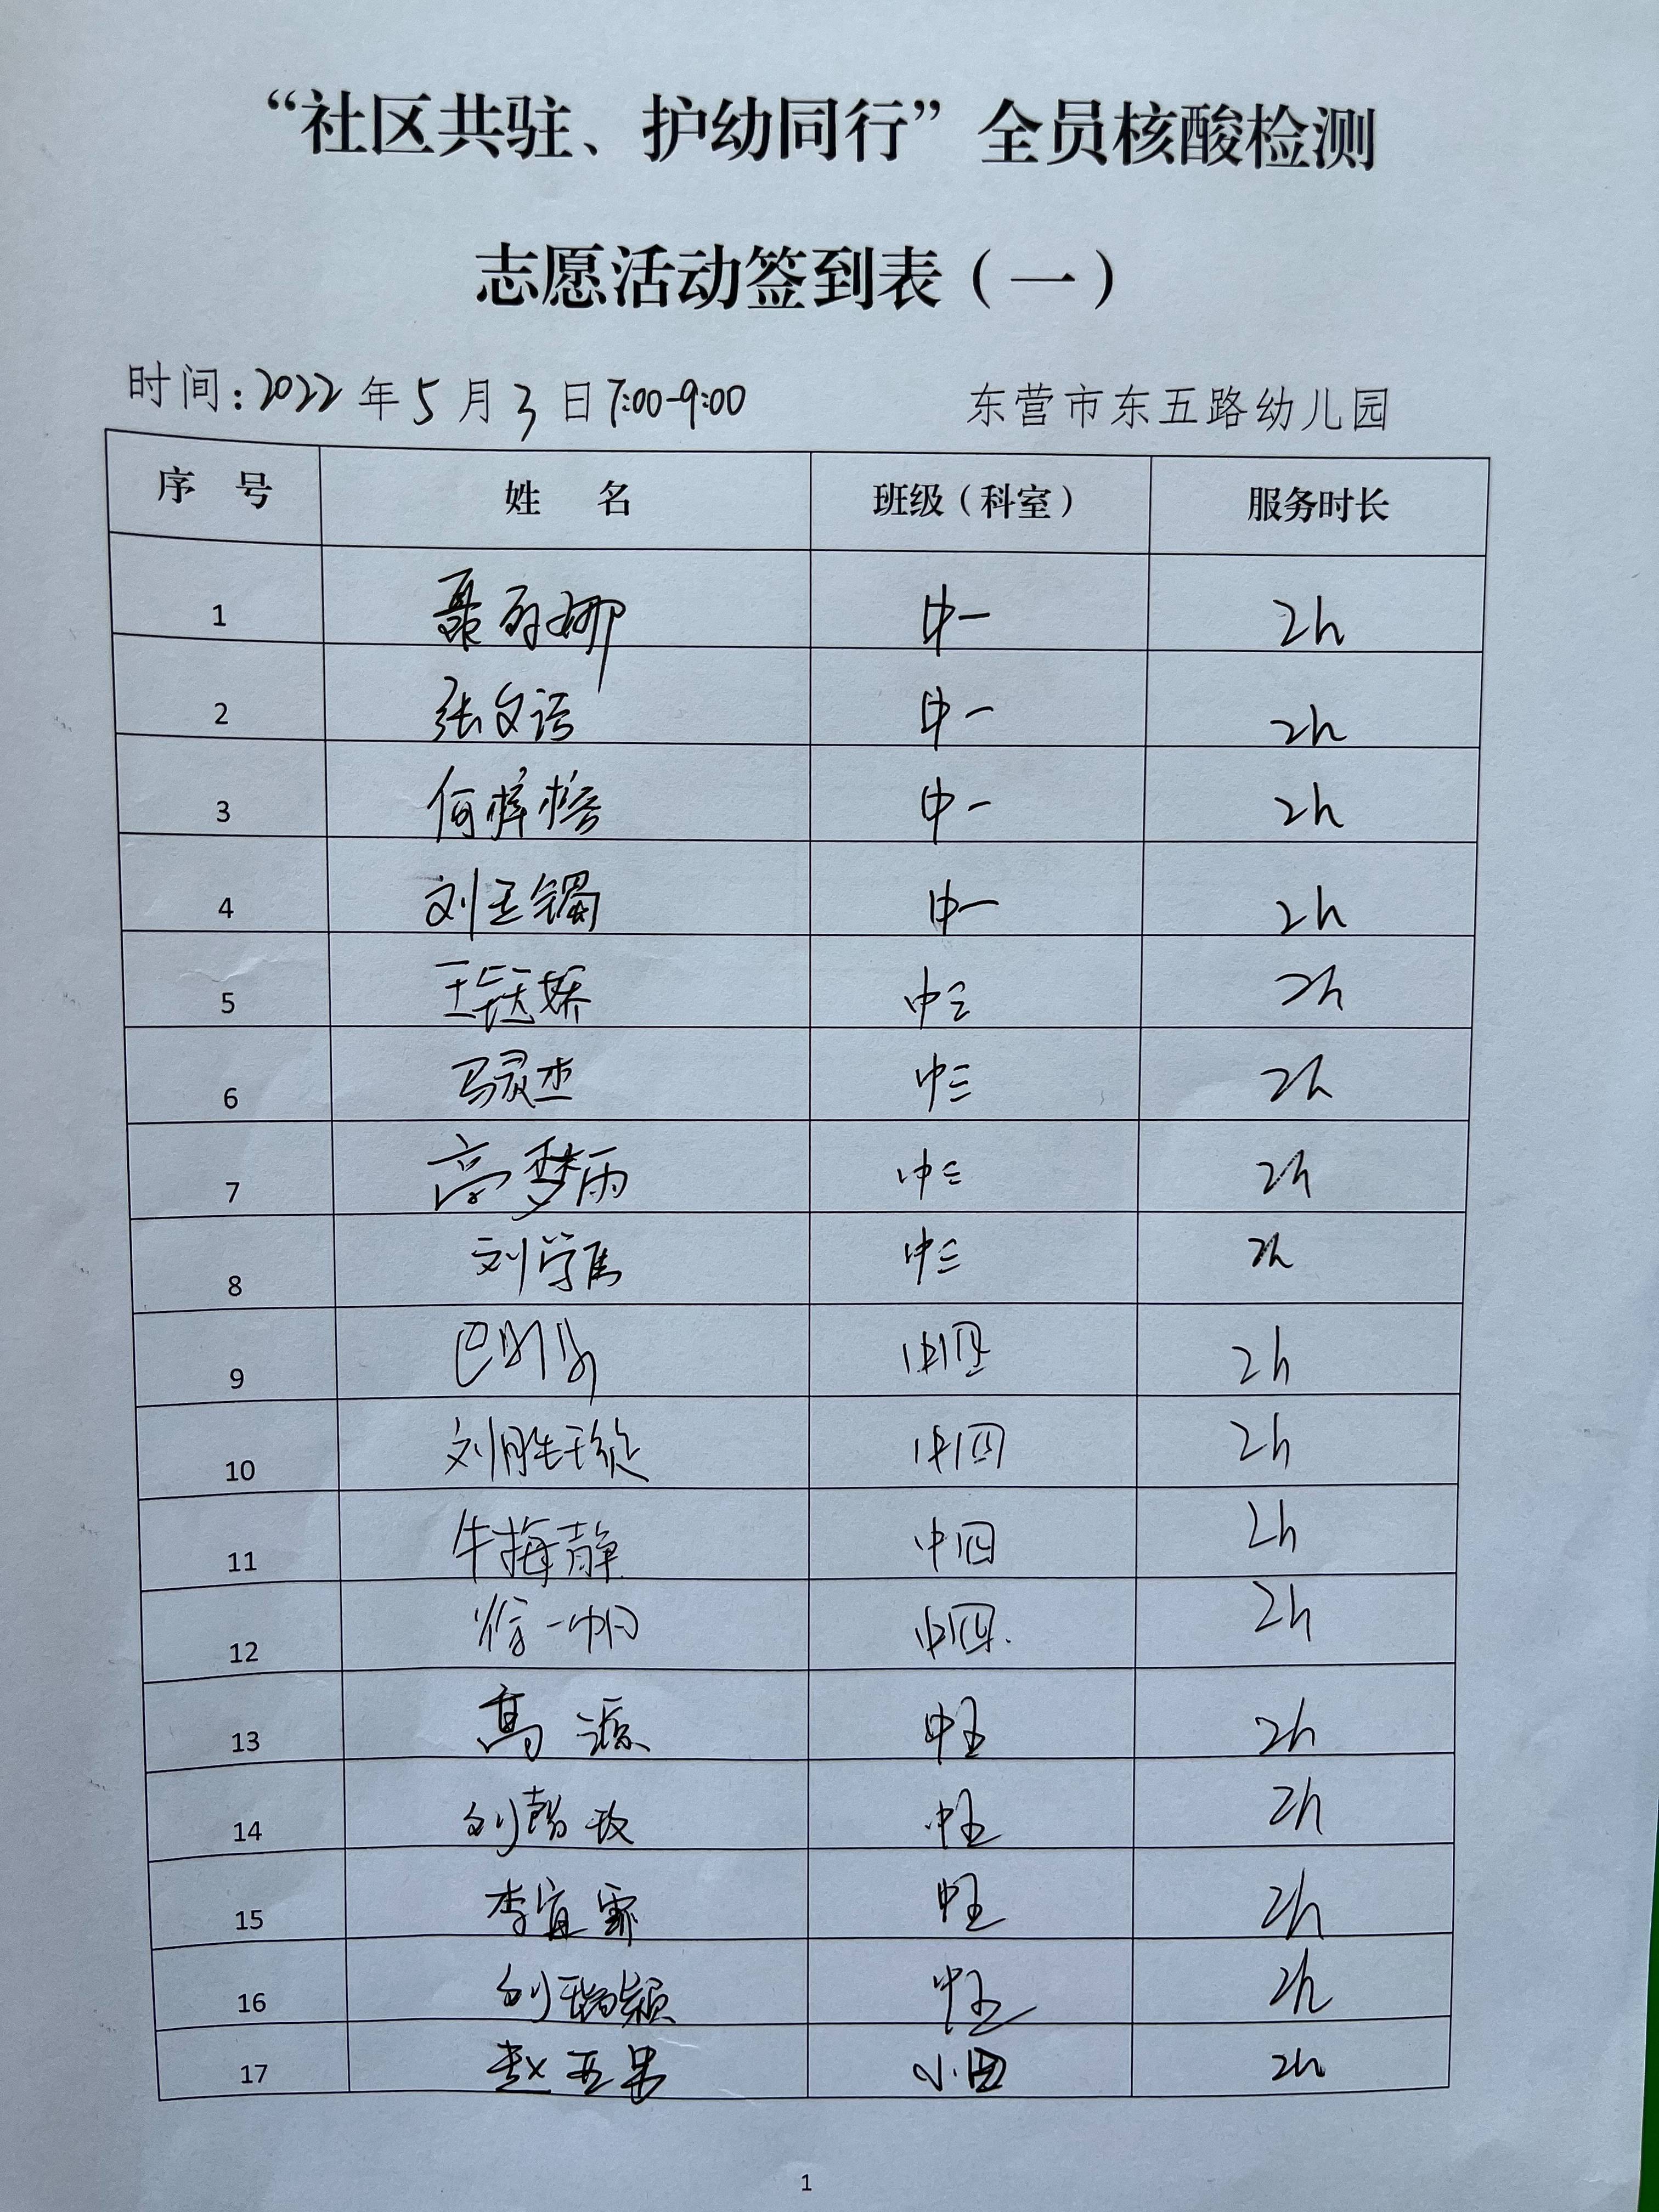 “社区共驻、护幼同行”全员核酸检测
志愿活动签到表（一）
时间:2022年5月3日7:00-9:00 东营市东五路幼儿园
序 号 姓 名 班级（科室） 服务时长
1 中一 2h
2 张文语 中一 2h
3 何梓榕 中一 2h
4 刘玉镯 中一 2h
5 王钰娇 中三 2h
6 马灵杰 中三 2h
7 高梦雨 中三 2h
8 中三 2h
9 中四 2h
10 中四 2h
11 牛梅静 中四 2h
12 徐一帆 中四 2h
13 高源 中五 2h
14 中五 2h
15 李宜霏 中五 2h
16 刘瑞颖 中五 2h
17 赵亚男 小四 2h
1